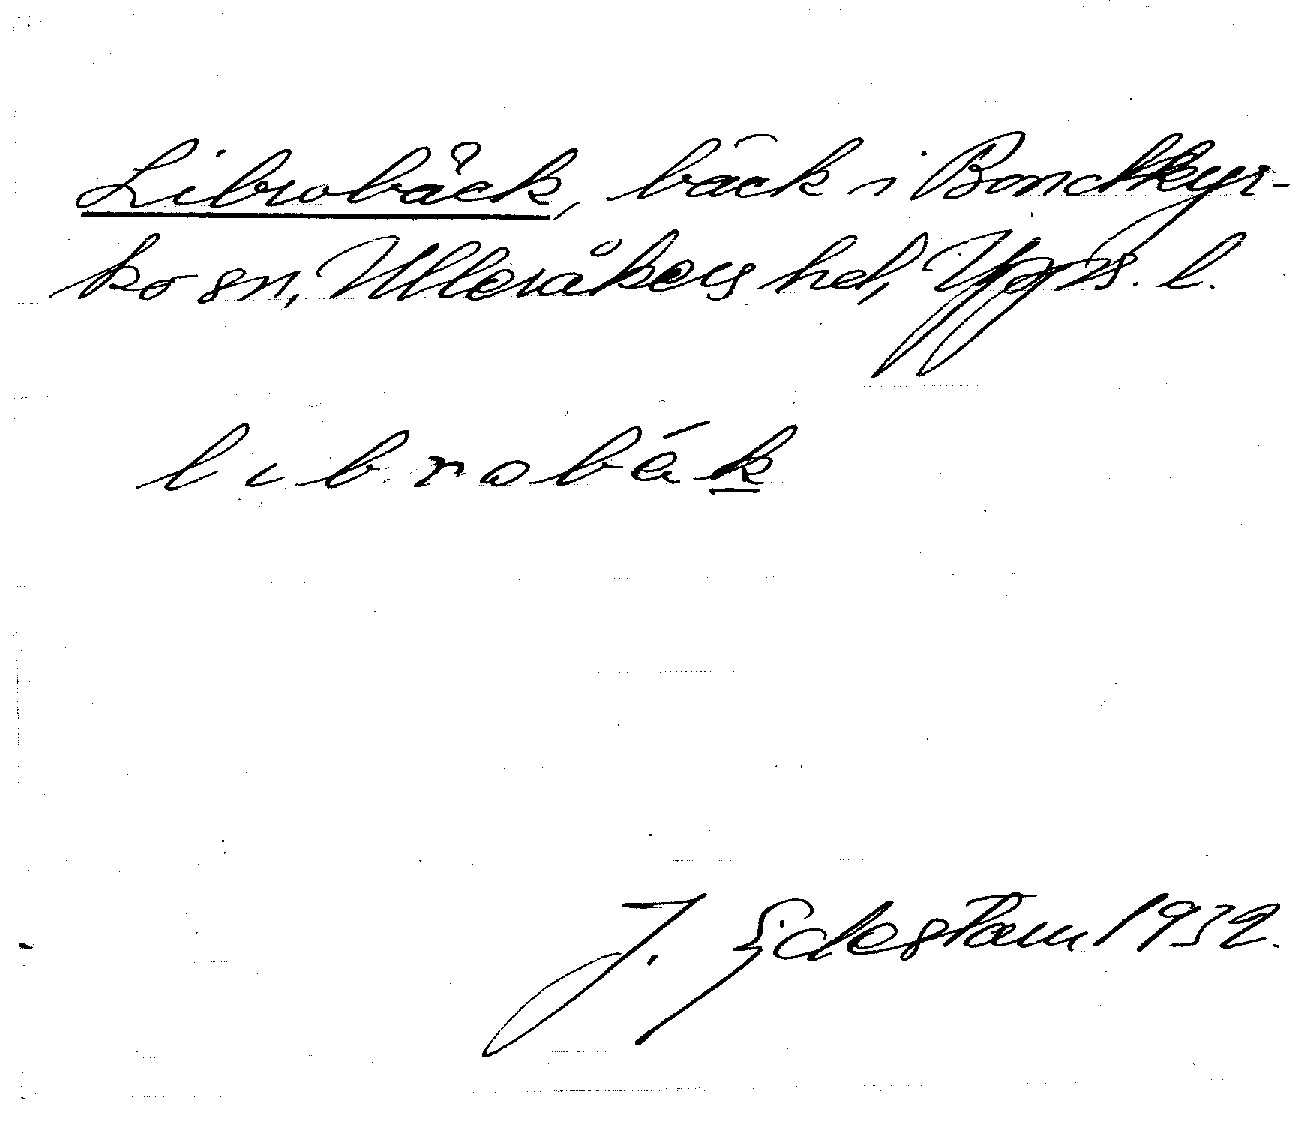 Librobäck, bäck i Bondkyr-
ko sn, Ulleråkers hd, Upps. l.
librobák
J. Edestam 1932.